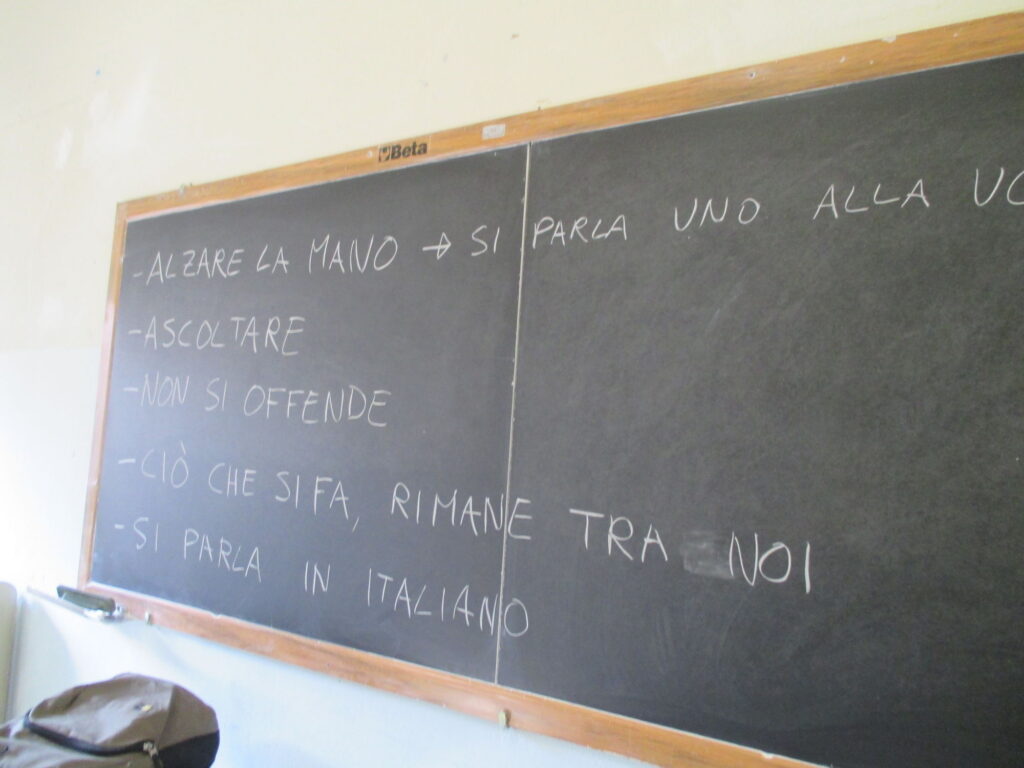 Beta
-ALZARE LA MANO → SI PARLA UNO ALLA
-ASCOLTARE
-NON SI OFFENDE
-CIÒ CHE SI FA, RIMANE TRA NOI
-SI PARLA IN ITALIANO